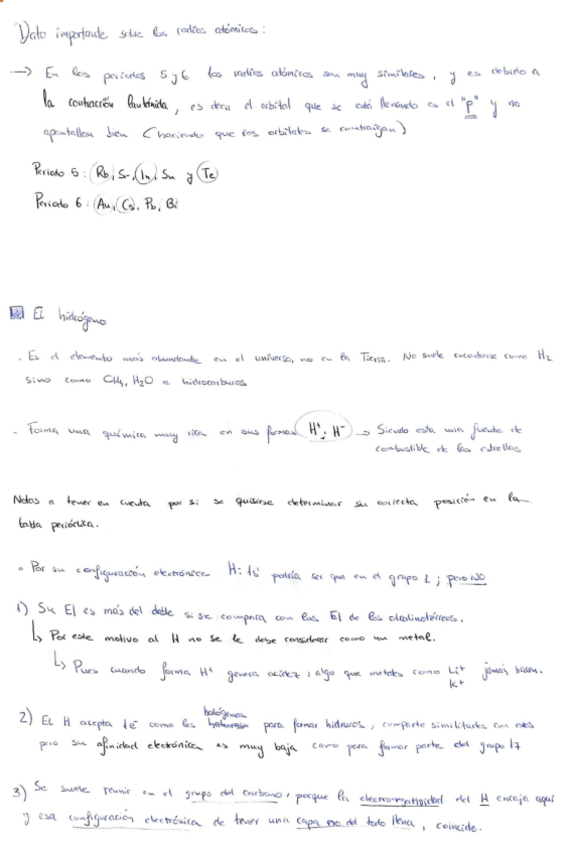 Dato importante sobre los radios atómicos:
→ En los periodos 5 y 6 los radios atómicos son muy similares, y es debido a
la contracción lantánida, es decir el orbital que se está llenando es el "p" y no
apantallan bien (haciendo que los orbitales se contraigan)
Periodo 5: Rb, Sr, In, Sn y Te
Periodo 6: Au, Cs, Pb, Bi
El hidrógeno
. Es el elemento más abundante en el universo, no en la Tierra. No suele encontrarse como H2
sino como CH4, H2O e hidrocarburos
. Forma una química muy rica en sus formas H+, H- → Siendo esta una fuente de
combustible de las estrellas
Notas a tener en cuenta por si se quisiese determinar su correcta posición en la
tabla periódica.
• Por su configuración electrónica H: 1s1 podría ser que en el grupo 1; pero NO
1) Su EI es más del doble si se compara con las EI de los alcalinotérreos.
↳ Por este motivo al H no se le debe considerar como un metal.
↳ Pues cuando forma H+ genera acidez, algo que metales como Li+ K+ jamás hacen.
2) El H acepta 1e- como los halógenos para formar hidruros, comparte similitudes con estos
pero su afinidad electrónica es muy baja como para formar parte del grupo 17
3) Se suele reunir en el grupo del carbono, porque la electronegatividad del H encaja aquí
y esa configuración electrónica de tener una capa no del todo llena, coincide.